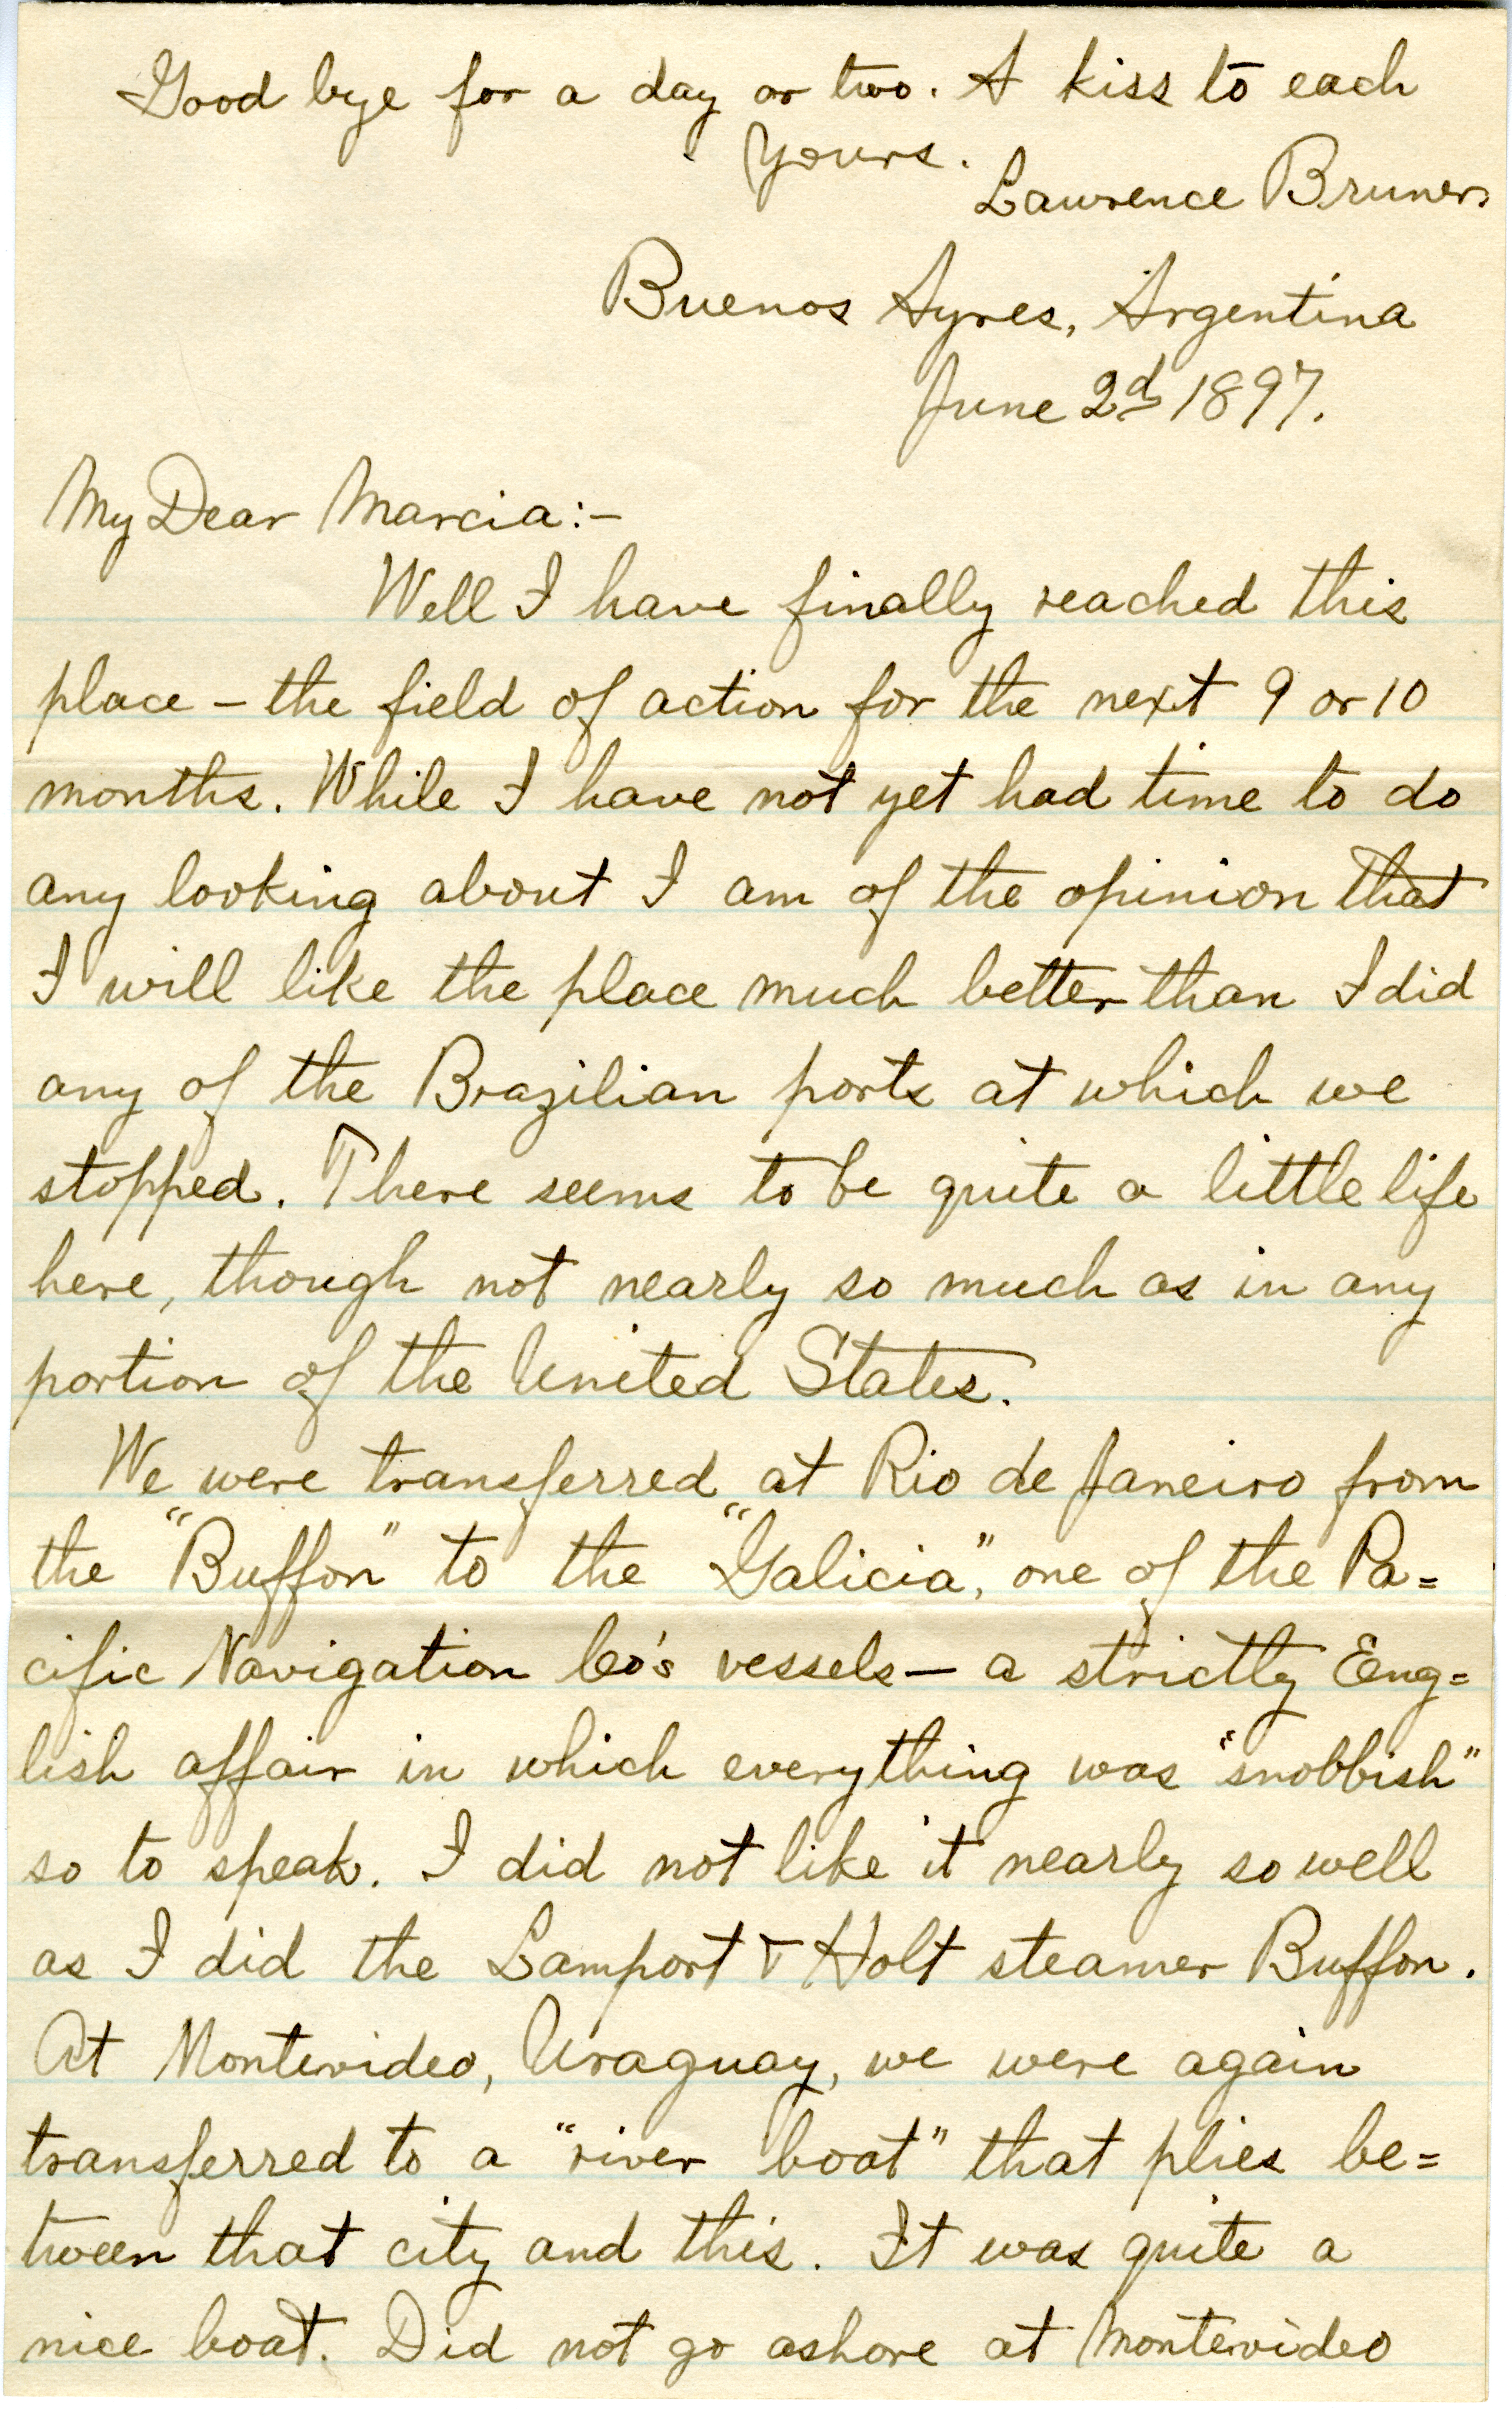 Good bye for a day or two. A kiss to each
Yours.
Lawrence Bruner.
Buenos Ayres, Argentina
June 2d 1897.
My Dear Marcia:-
Well I have finally reached this
place – the field of action for the next 9 or 10
months. While I have not yet had time to do
any looking about I am of the opinion that
I will like the place much better than I did
any of the Brazilian ports at which we
stopped. There seems to be quite a little life
here, though not nearly so much as in any
portion of the United States.
We were transferred at Rio de Janeiro from
the "Buffon" to the "Galicia", one of the Pa=
cific Navigation Co's vessels – a strictly Eng=
lish affair in which everything was "snobbish"
so to speak. I did not like it nearly so well
as I did the Lamport & Holt steamer Buffon.
At Montevideo, Uraguay, we were again
transferred to a "river boat" that plies be=
tween that city and this. It was quite a
nice boat. Did not go ashore at Montevideo